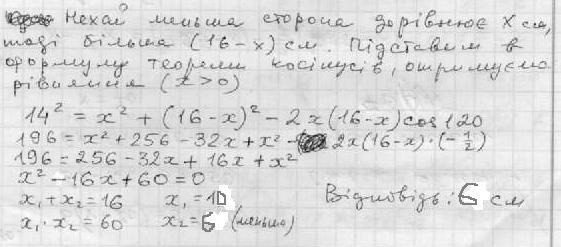 Нехай менша сторона дорівнює x см,
тоді більша (16-x) см. Підставим в
формулу теореми косінусів, отримуємо
рівняння (x>0)
14² = x² + (16-x)² - 2x(16-x)cos120
196 = x² + 256 - 32x + x² - 2x(16-x)·(-1/2)
196 = 256 - 32x + 16x + x²
x² - 16x + 60 = 0
x₁ + x₂ = 16 x₁ = 10 Відповідь: 6 см
x₁ · x₂ = 60 x₂ = 6 (меньша)